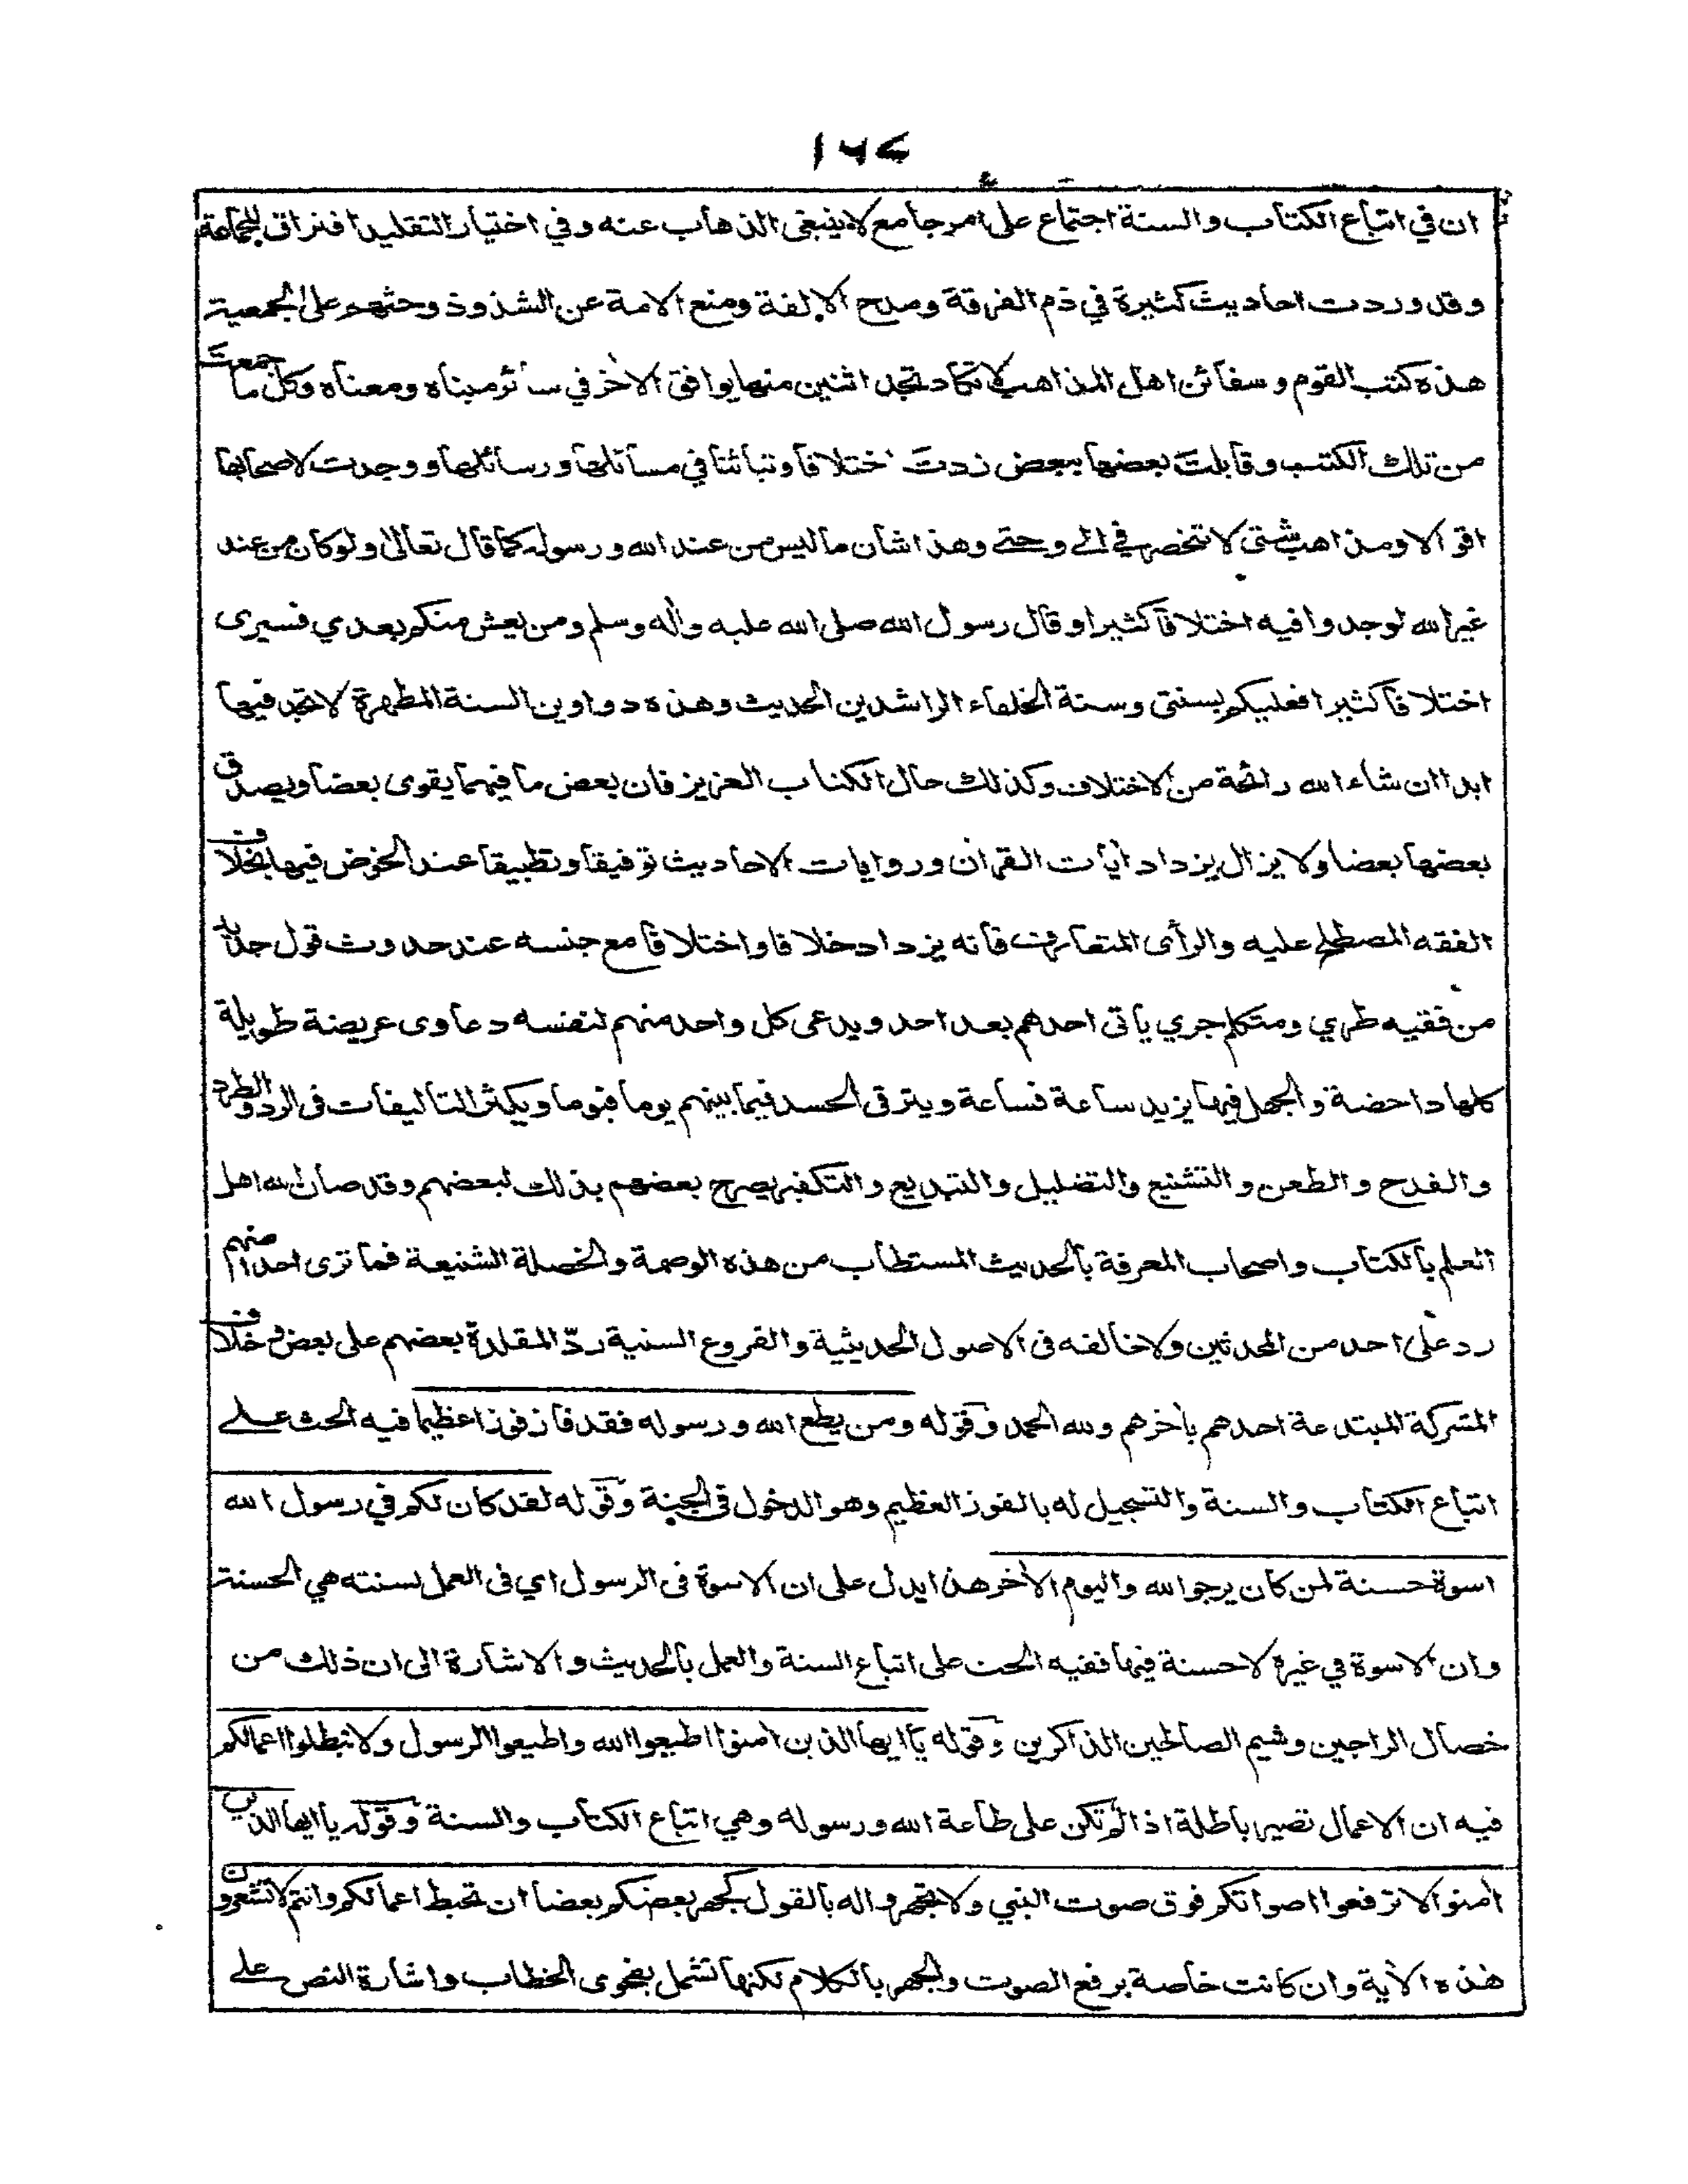 ١٦٧
ان في اتباع الكتاب والسنة اجتماع على امر جامع لا ينبغى الذهاب عنه وفي اختيار التقليد افتراق للجماعة
وقد وردت احاديث كثيرة في ذم الفرقة ومدح الالفة ومنع الامة عن الشذوذ وحثهم على الجمعية
هذه كتب القوم وسفائن اهل المذاهب لا تكاد تجد اثنين منها يوافق الاخر في سائر مبناه ومعناه وكل ما جمعت
من تلك الكتب وقابلت بعضها ببعض زدت اختلافا وتبائنا في مسائلها ورسائلها ووجدت لاصحابها
اقوالا ومذاهب شتى لا تنحصر في الى وحتى وهذا شان ما ليس من عند الله ورسوله كما قال تعالى ولو كان من عند
غير الله لوجدوا فيه اختلافا كثيرا وقال رسول الله صلى الله عليه وأله وسلم ومن يعش منكم بعدي فسيرى
اختلافا كثيرا فعليكم بسنتى وسنة الخلفاء الراشدين الحديث وهذه دواوين السنة المطهرة لا تجد فيها
ابدا ان شاء الله رائحة من الاختلاف وكذلك حال الكتاب العزيز فان بعض ما فيهما يقوى بعضا ويصدق
بعضها بعضا ولا يزال يزداد أيات القرأن وروايات الاحاديث توفيقا وتطبيقا عند الخوض فيها بخلاف
الفقه المصطلح عليه والرأى المتعارف فانه يزداد خلافا واختلافا مع جنسه عند حدوث قول جديد
من فقيه طري ومتكلم جري يأتى احدهم بعد احد ويدعى كل واحد منهم لنفسه دعاوى عريضة طويلة
كلها داحضة والجهل فيها يزيد ساعة فساعة ويترقى الحسد فيما بينهم يوما فيوما ويكثر التاليفات فى الرد والطرد
والقدح والطعن والتشنيع والتضليل والتبديع والتكفير يصرح بعضهم بذلك لبعضهم وقد صان الله اهل
العلم بالكتاب واصحاب المعرفة بالحديث المستطاب من هذه الوصمة والخصلة الشنيعة فما ترى احدا منهم
رد على احد من المحدثين ولا خالفه فى الاصول الحديثية والفروع السنية ردّ المقلدة بعضهم على بعض وخلاف
المشركة المبتدعة احدهم بأخرهم ولله الحمد وقوله ومن يطع الله ورسوله فقد فاز فوزا عظيما فيه الحث على
اتباع الكتاب والسنة والتسجيل له بالفوز العظيم وهو الدخول فى الجنة وقوله لقد كان لكم في رسول الله
اسوة حسنة لمن كان يرجو الله واليوم الأخر هذا يدل على ان الاسوة فى الرسول اي فى العمل بسنته هي الحسنة
وان الاسوة في غيره لا حسنة فيها ففيه الحث على اتباع السنة والعمل بالحديث والاشارة الى ان ذلك من
خصال الراجين وشيم الصالحين الذاكرين وقوله يا ايها الذين امنوا اطيعوا الله واطيعوا الرسول ولا تبطلوا اعمالكم
فيه ان الاعمال تصير باطلة اذا لم تكن على طاعة الله ورسوله وهي اتباع الكتاب والسنة وقوله يا ايها الذين
أمنوا لا ترفعوا اصواتكم فوق صوت النبي ولا تجهروا له بالقول كجهر بعضكم بعضا ان تحبط اعمالكم وانتم لا تشعرون
هذه الأية وان كانت خاصة برفع الصوت والجهر بالكلام لكنها تشمل بفحوى الخطاب واشارة النص على